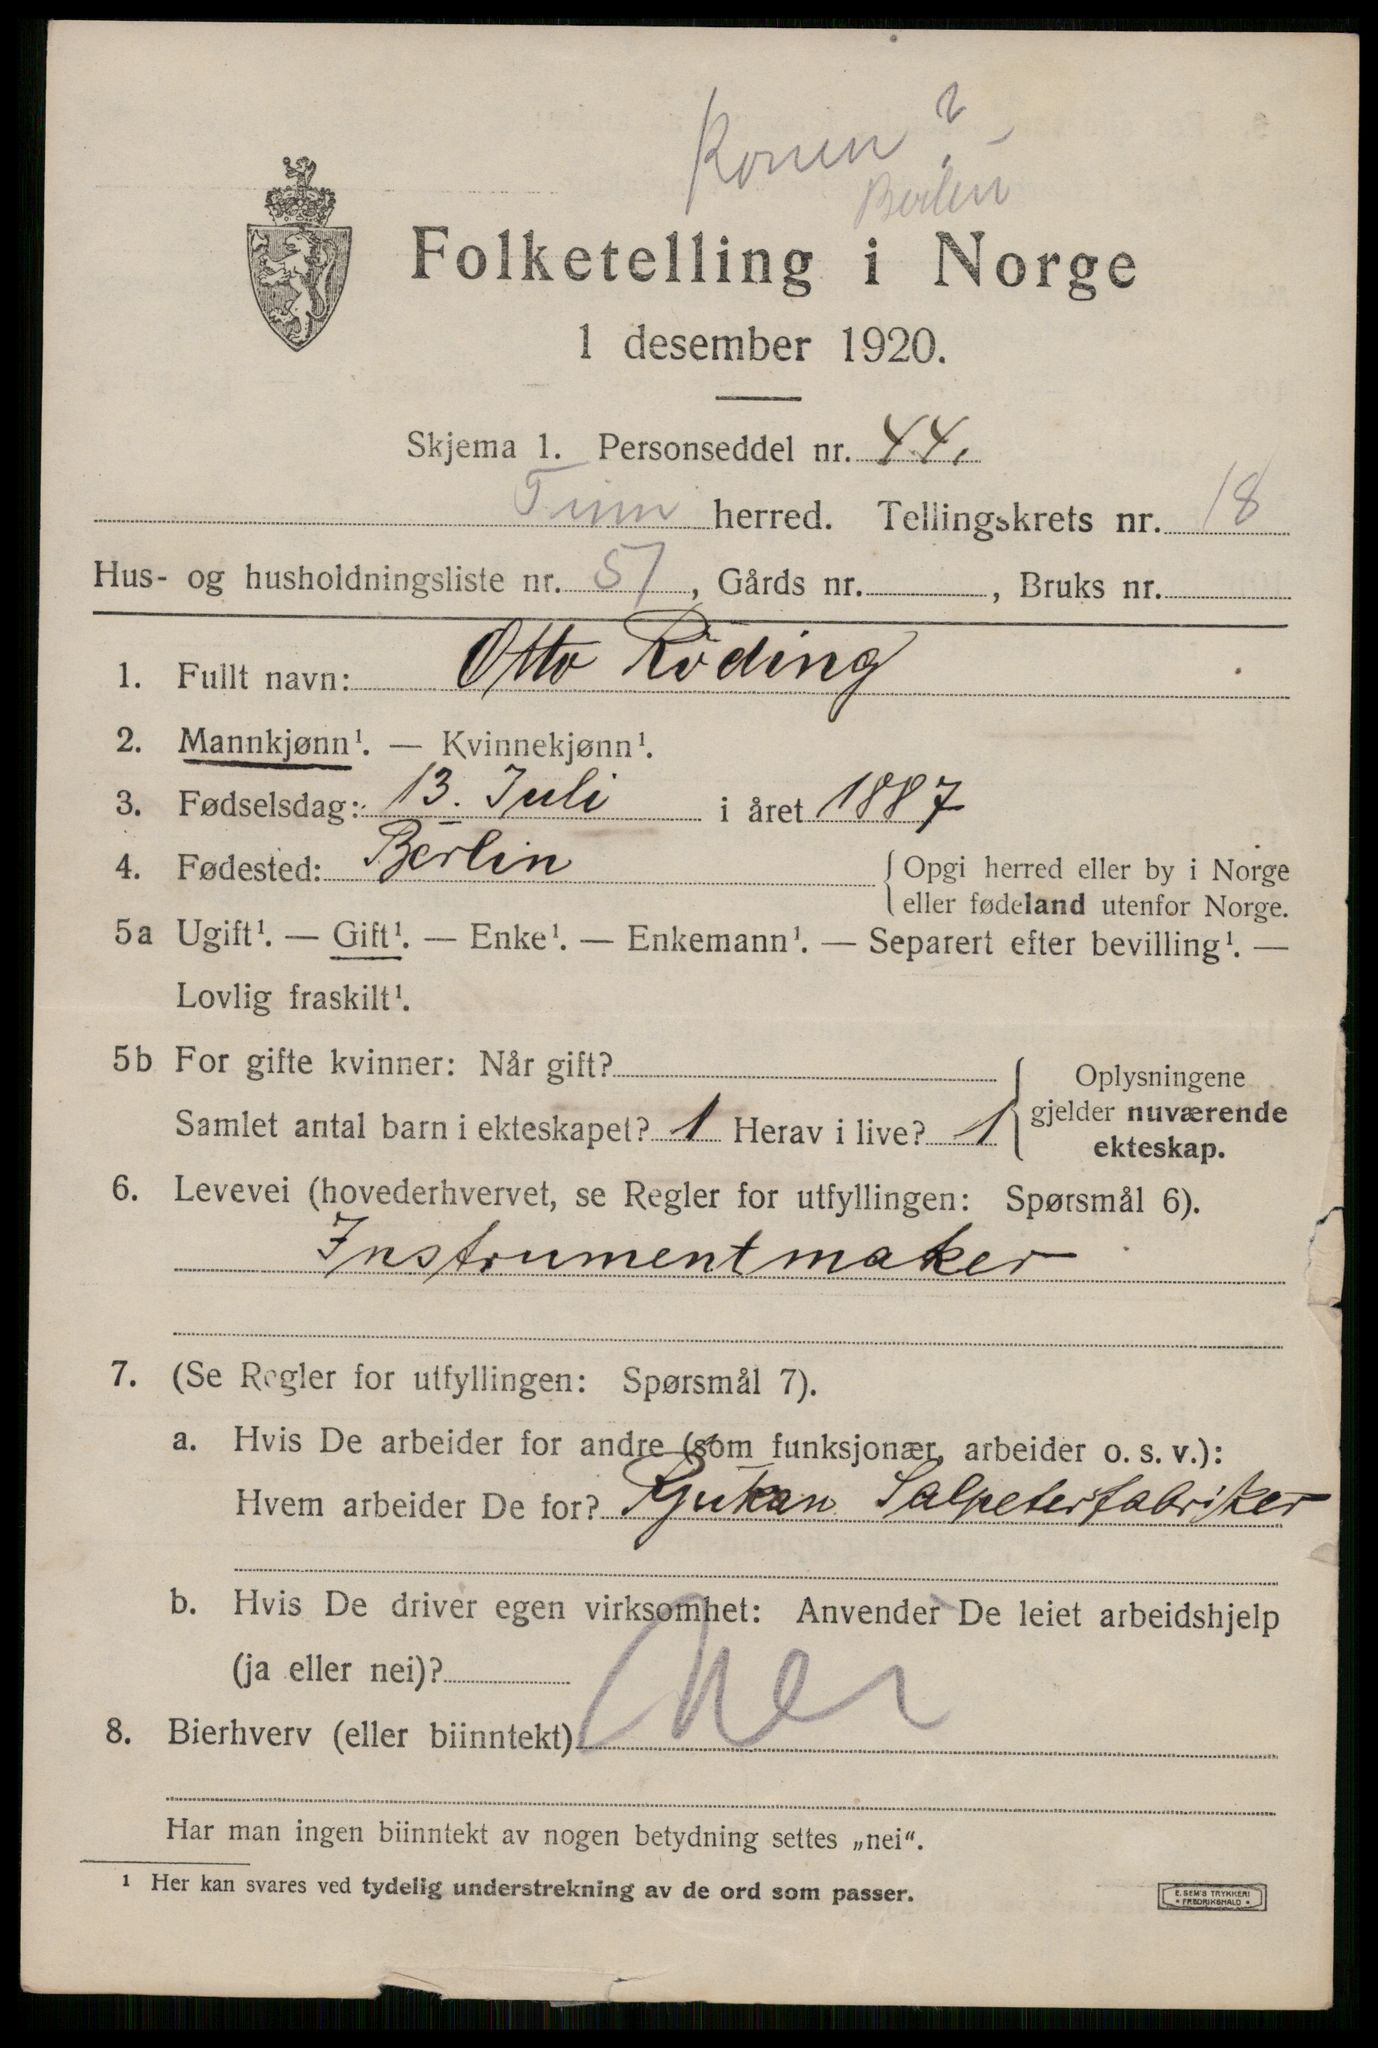 Konen?
Berlin
Folketelling i Norge
1 desember 1920.
Skjema 1. Personseddel nr. 44.
Tinn herred. Tellingskrets nr. 18
Hus- og husholdningsliste nr. 57, Gårds nr. , Bruks nr.
1. Fullt navn: Otto Röding
2. Mannkjønn¹. — Kvinnekjønn¹.
3. Fødselsdag: 13. Juli i året 1887
4. Fødested: Berlin { Opgi herred eller by i Norge
eller fødeland utenfor Norge.
5a Ugift¹. — Gift¹. — Enke¹. — Enkemann¹. — Separert efter bevilling¹. —
Lovlig fraskilt¹.
5b For gifte kvinner: Når gift?
Samlet antal barn i ekteskapet? 1 Herav i live? 1
Oplysningene
gjelder nuværende
ekteskap.
6. Levevei (hovederhvervet, se Regler for utfyllingen: Spørsmål 6).
Instrumentmaker
7. (Se Regler for utfyllingen: Spørsmål 7).
a. Hvis De arbeider for andre (som funksjonær, arbeider o. s. v.):
Hvem arbeider De for? Rjukan Salpeterfabriker
b. Hvis De driver egen virksomhet: Anvender De leiet arbeidshjelp
(ja eller nei)?
8. Bierhverv (eller biinntekt) Nei
Har man ingen biinntekt av nogen betydning settes „nei“.
¹ Her kan svares ved tydelig understrekning av de ord som passer.
E. SEM'S TRYKKERI
* FREDRIKSHALD *